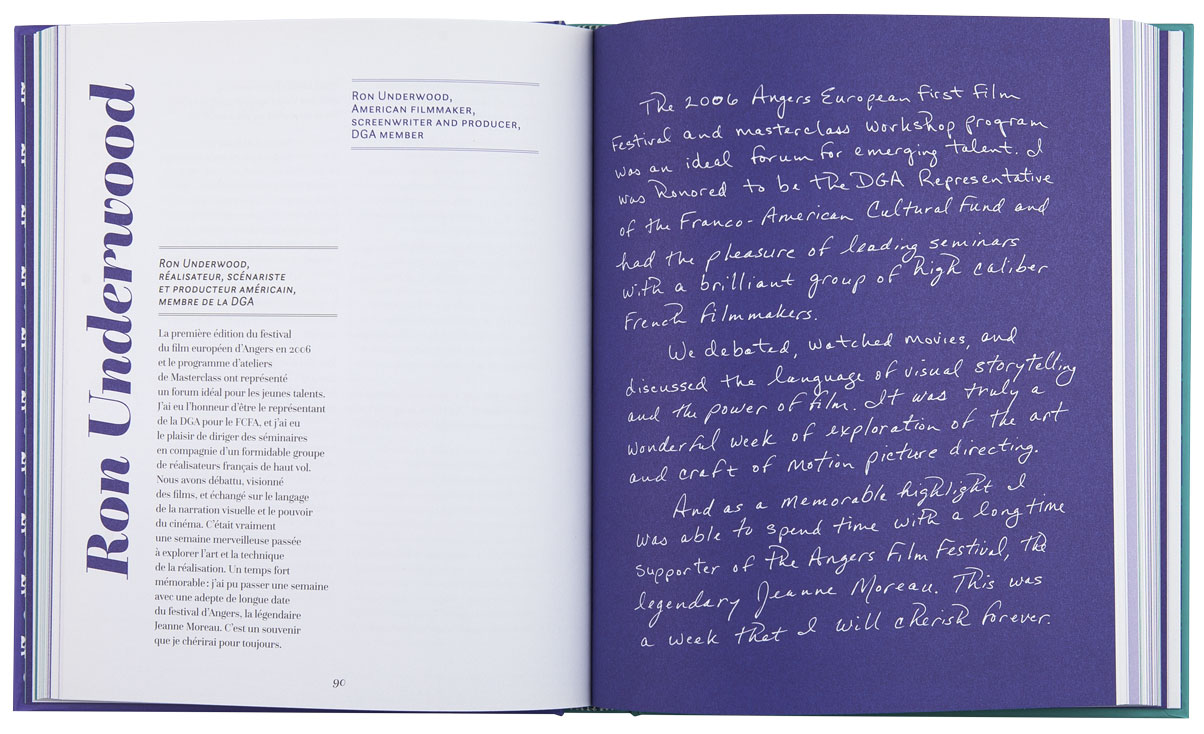 Ron Underwood
Ron Underwood,
American filmmaker,
screenwriter and producer,
DGA member
Ron Underwood,
réalisateur, scénariste
et producteur américain,
membre de la DGA
La première édition du festival
du film européen d'Angers en 2006
et le programme d'ateliers
de Masterclass ont représenté
un forum idéal pour les jeunes talents.
J'ai eu l'honneur d'être le représentant
de la DGA pour le FCFA, et j'ai eu
le plaisir de diriger des séminaires
en compagnie d'un formidable groupe
de réalisateurs français de haut vol.
Nous avons débattu, visionné
des films, et échangé sur le langage
de la narration visuelle et le pouvoir
du cinéma. C'était vraiment
une semaine merveilleuse passée
à explorer l'art et la technique
de la réalisation. Un temps fort
mémorable : j'ai pu passer une semaine
avec une adepte de longue date
du festival d'Angers, la légendaire
Jeanne Moreau. C'est un souvenir
que je chérirai pour toujours.
90
The 2006 Angers European First Film
Festival and masterclass workshop program
was an ideal forum for emerging talent. I
was honored to be the DGA Representative
of the Franco-American Cultural Fund and
had the pleasure of leading seminars
with a brilliant group of high caliber
French filmmakers.
We debated, watched movies, and
discussed the language of visual storytelling
and the power of film. It was truly a
wonderful week of exploration of the art
and craft of motion picture directing.
And as a memorable highlight I
was able to spend time with a long time
supporter of the Angers Film Festival, the
legendary Jeanne Moreau. This was
a week that I will cherish forever.